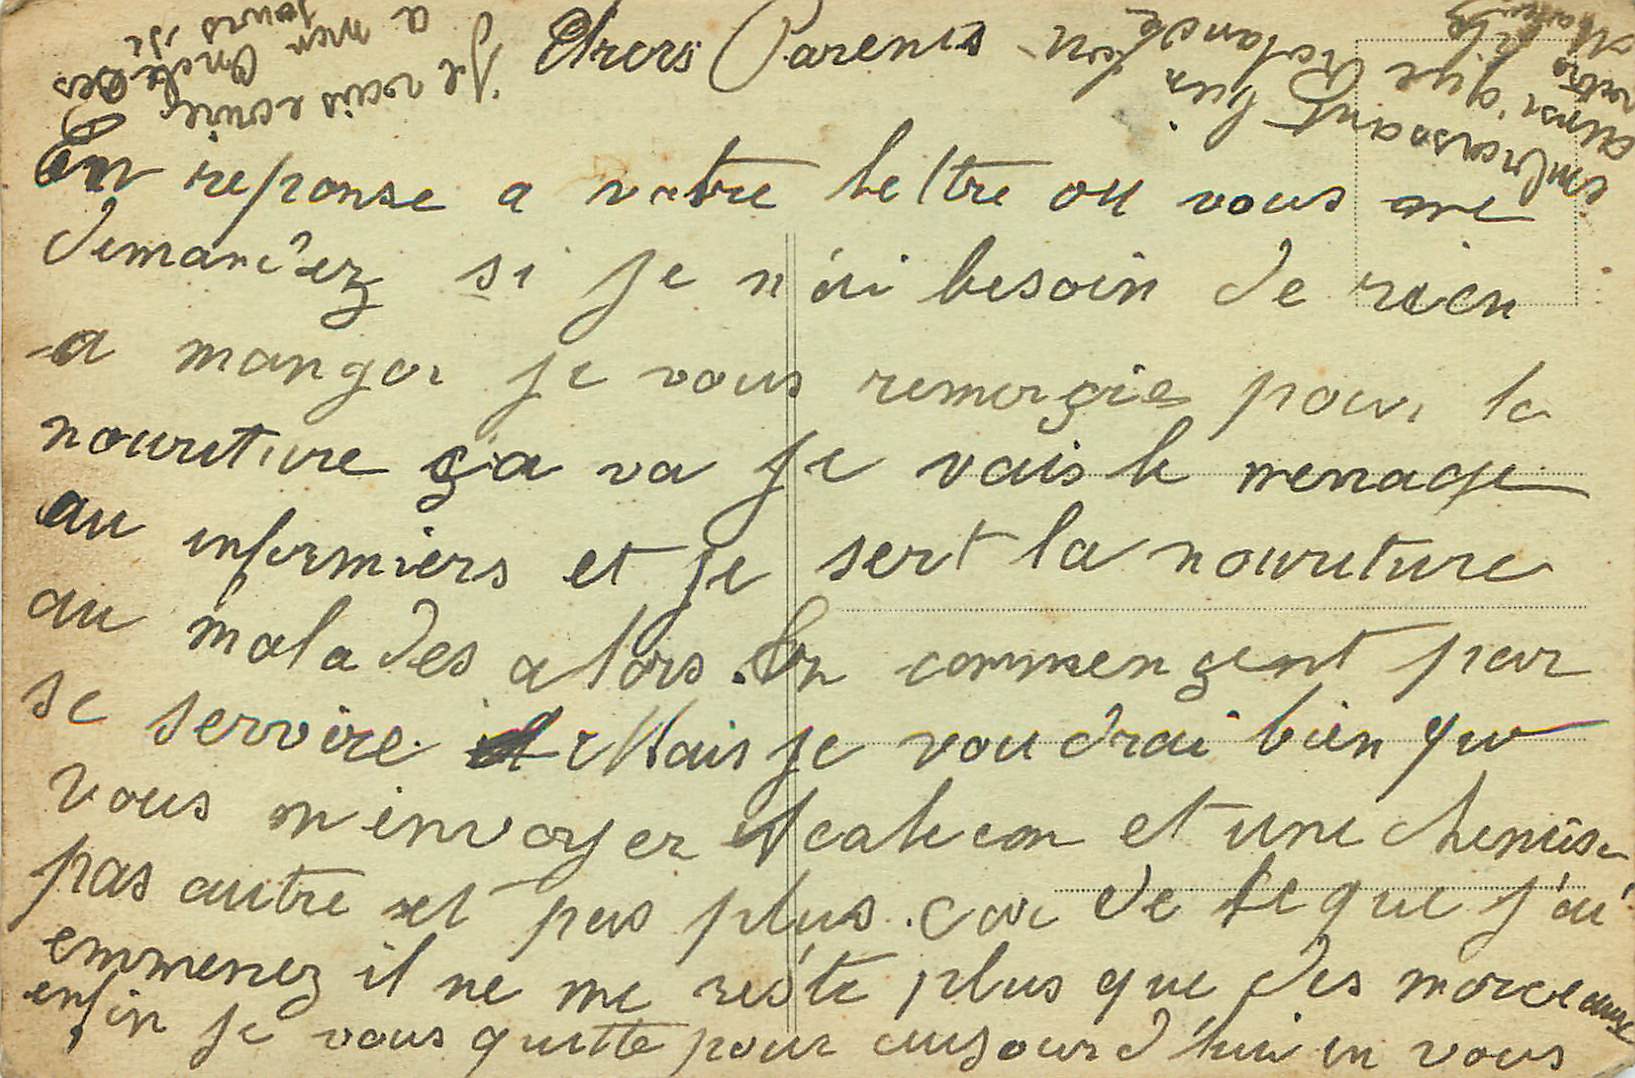 Chers Parents
En reponse a votre lettre ou vous me
demandez si je n'ai besoin de rien
a manger je vous remerçie pour la
nouriture ça va je vais le menage
au infirmiers et je sert la nouriture
au malades alors. On commençent par
se servire. Mais je voudrai bien que
vous m'envoyer calecon et une chemise
pas autre et pas plus. car de ce que j'ai
emmenez il ne me reste plus que des morceaux
enfin je vous quitte pour aujourd'hui en vous
embrassant bien fort
ainsi que Rolande
votre fils
Je vais ecrire
a mon Oncle ces
jours si